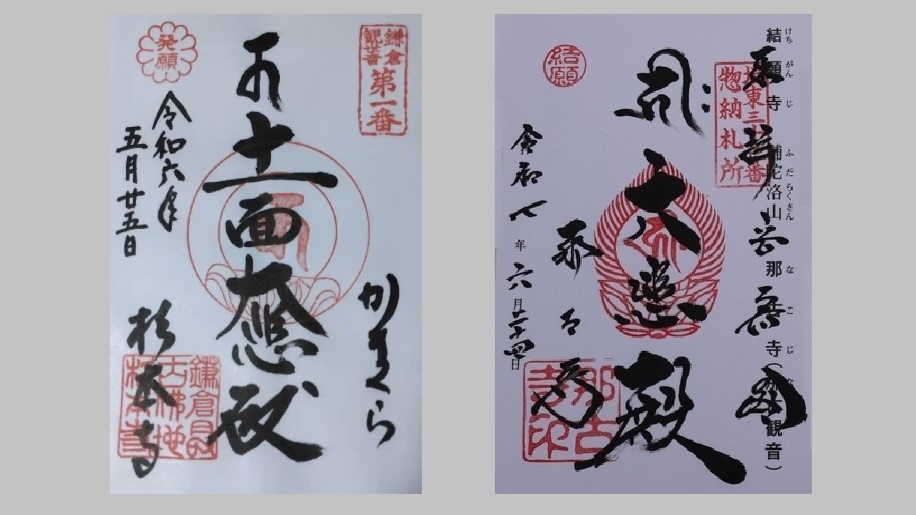 鎌倉
観世音
第一番
かまくら
十一面大悲殿
発願
令和六年
五月廿五日
杉本寺
けちがんじ ふだらくさん なこじ
結願寺 補陀洛山 那古寺
観音）
坂東三十三番
惣納札所
大悲殿
結願
那古寺
令和七年六月二十四日
那古
寺印